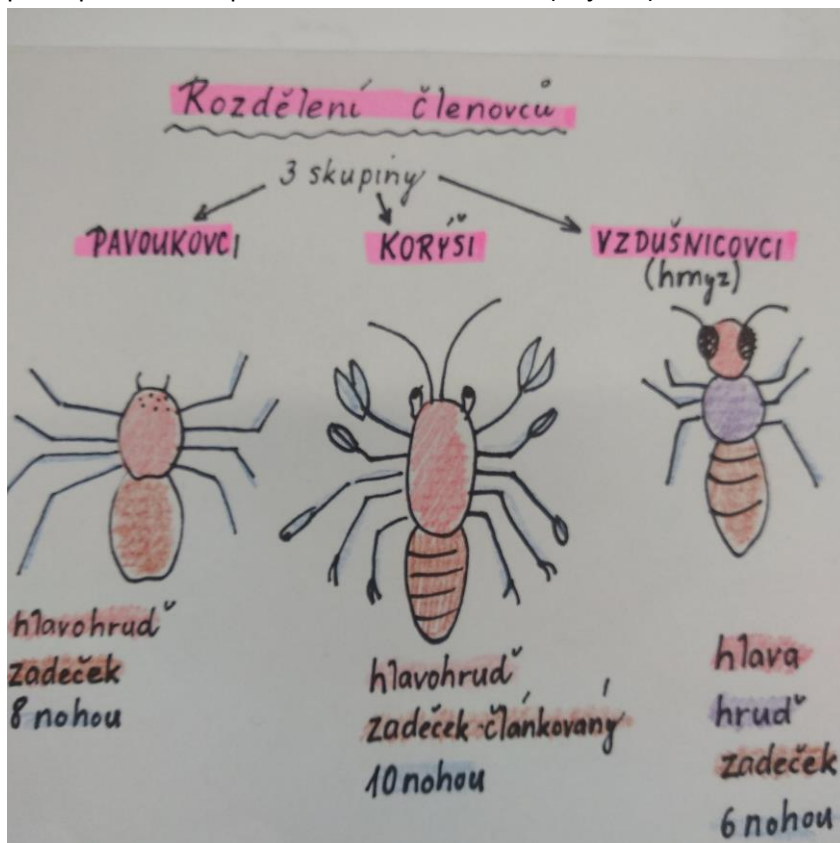 Rozdělení členovců
3 skupiny
PAVOUKOVCI
KORÝŠI
VZDUŠNICOVCI
(hmyz)
hlavohruď
zadeček
8 nohou
hlavohruď
zadeček-článkovaný
10 nohou
hlava
hruď
zadeček
6 nohou